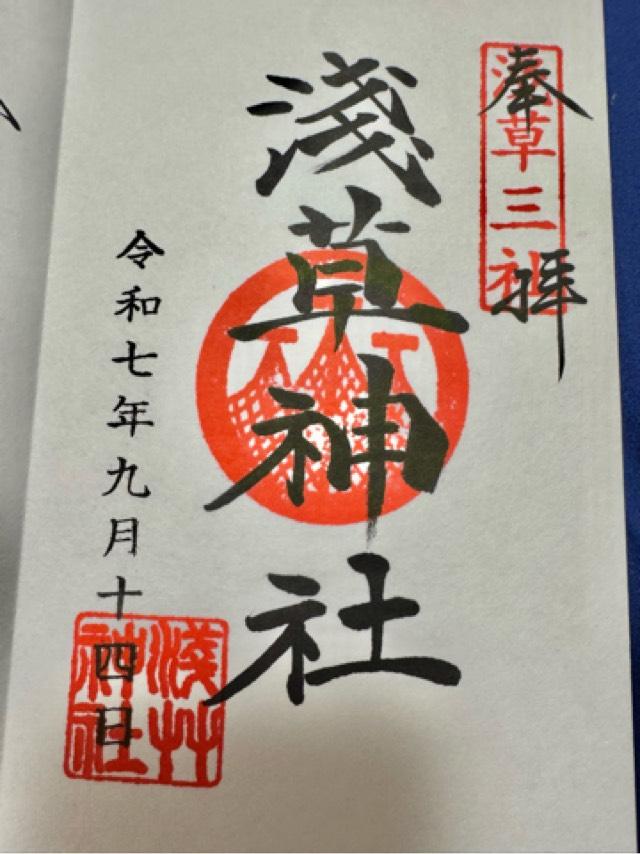 奉拝
淺草三社
淺草神社
令和七年九月十四日
淺艸神社